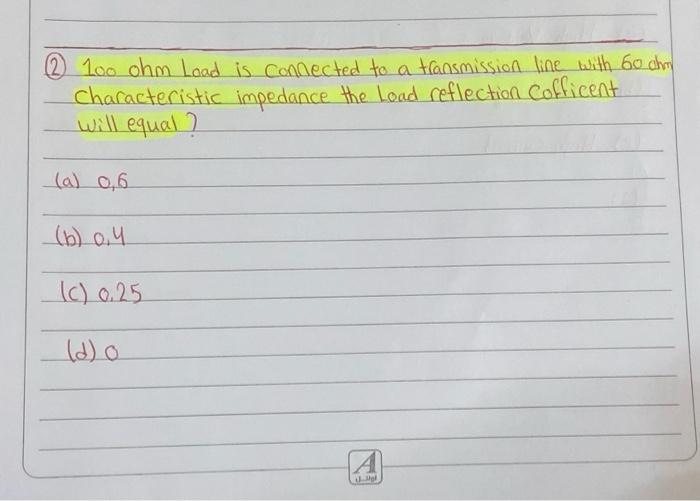 ② 100 ohm Load is connected to a transmission line with 60 ohm
characteristic impedance the Load reflection Cofficent
will equal ?
(a) 0,6
(b) 0.4
(c) 0.25
(d) 0
A